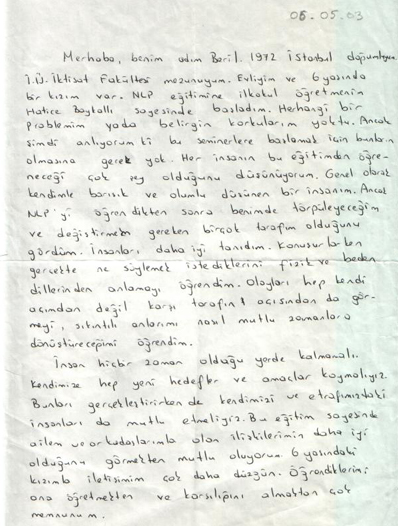 06.05.03
Merhaba, benim adım Beril. 1972 İstanbul doğumluyum.
İ.Ü. İktisat Fakültesi mezunuyum. Evliyim ve 6 yaşında
bir kızım var. NLP eğitimine ilkokul öğretmenim
Hatice Baykallı sayesinde başladım. Herhangi bir
problemim yada belirgin korkularım yoktu. Ancak
şimdi anlıyorum ki bu seminerlere başlamak için bunların
olmasına gerek yok. Her insanın bu eğitimden öğre-
neceği çok şey olduğunu düşünüyorum. Genel olarak
kendimle barışık ve olumlu düşünen bir insanım. Ancak
NLP'yi öğrendikten sonra benimde törpüleyeceğim
ve değiştirmem gereken birçok tarafım olduğunu
gördüm. İnsanları daha iyi tanıdım. Konuşurlarken
gerçekte ne söylemek istediklerini fizik ve beden
dillerinden anlamayı öğrendim. Olayları hep kendi
açımdan değil karşı tarafın açısından da gör-
meyi, sıkıntılı anlarımı nasıl mutlu zamanlara
dönüştüreceğimi öğrendim.
İnsan hiçbir zaman olduğu yerde kalmamalı.
Kendimize hep yeni hedefler ve amaçlar koymalıyız.
Bunları gerçekleştirirken de kendimizi ve etrafımızdaki
insanları da mutlu etmeliyiz. Bu eğitim sayesinde
ailem ve arkadaşlarımla olan ilişkilerimin daha iyi
olduğunu görmekten mutlu oluyorum. 6 yaşındaki
kızımla iletişimim çok daha düzgün. Öğrendiklerimi
ona öğretmekten ve karşılığını almaktan çok
memnunum.